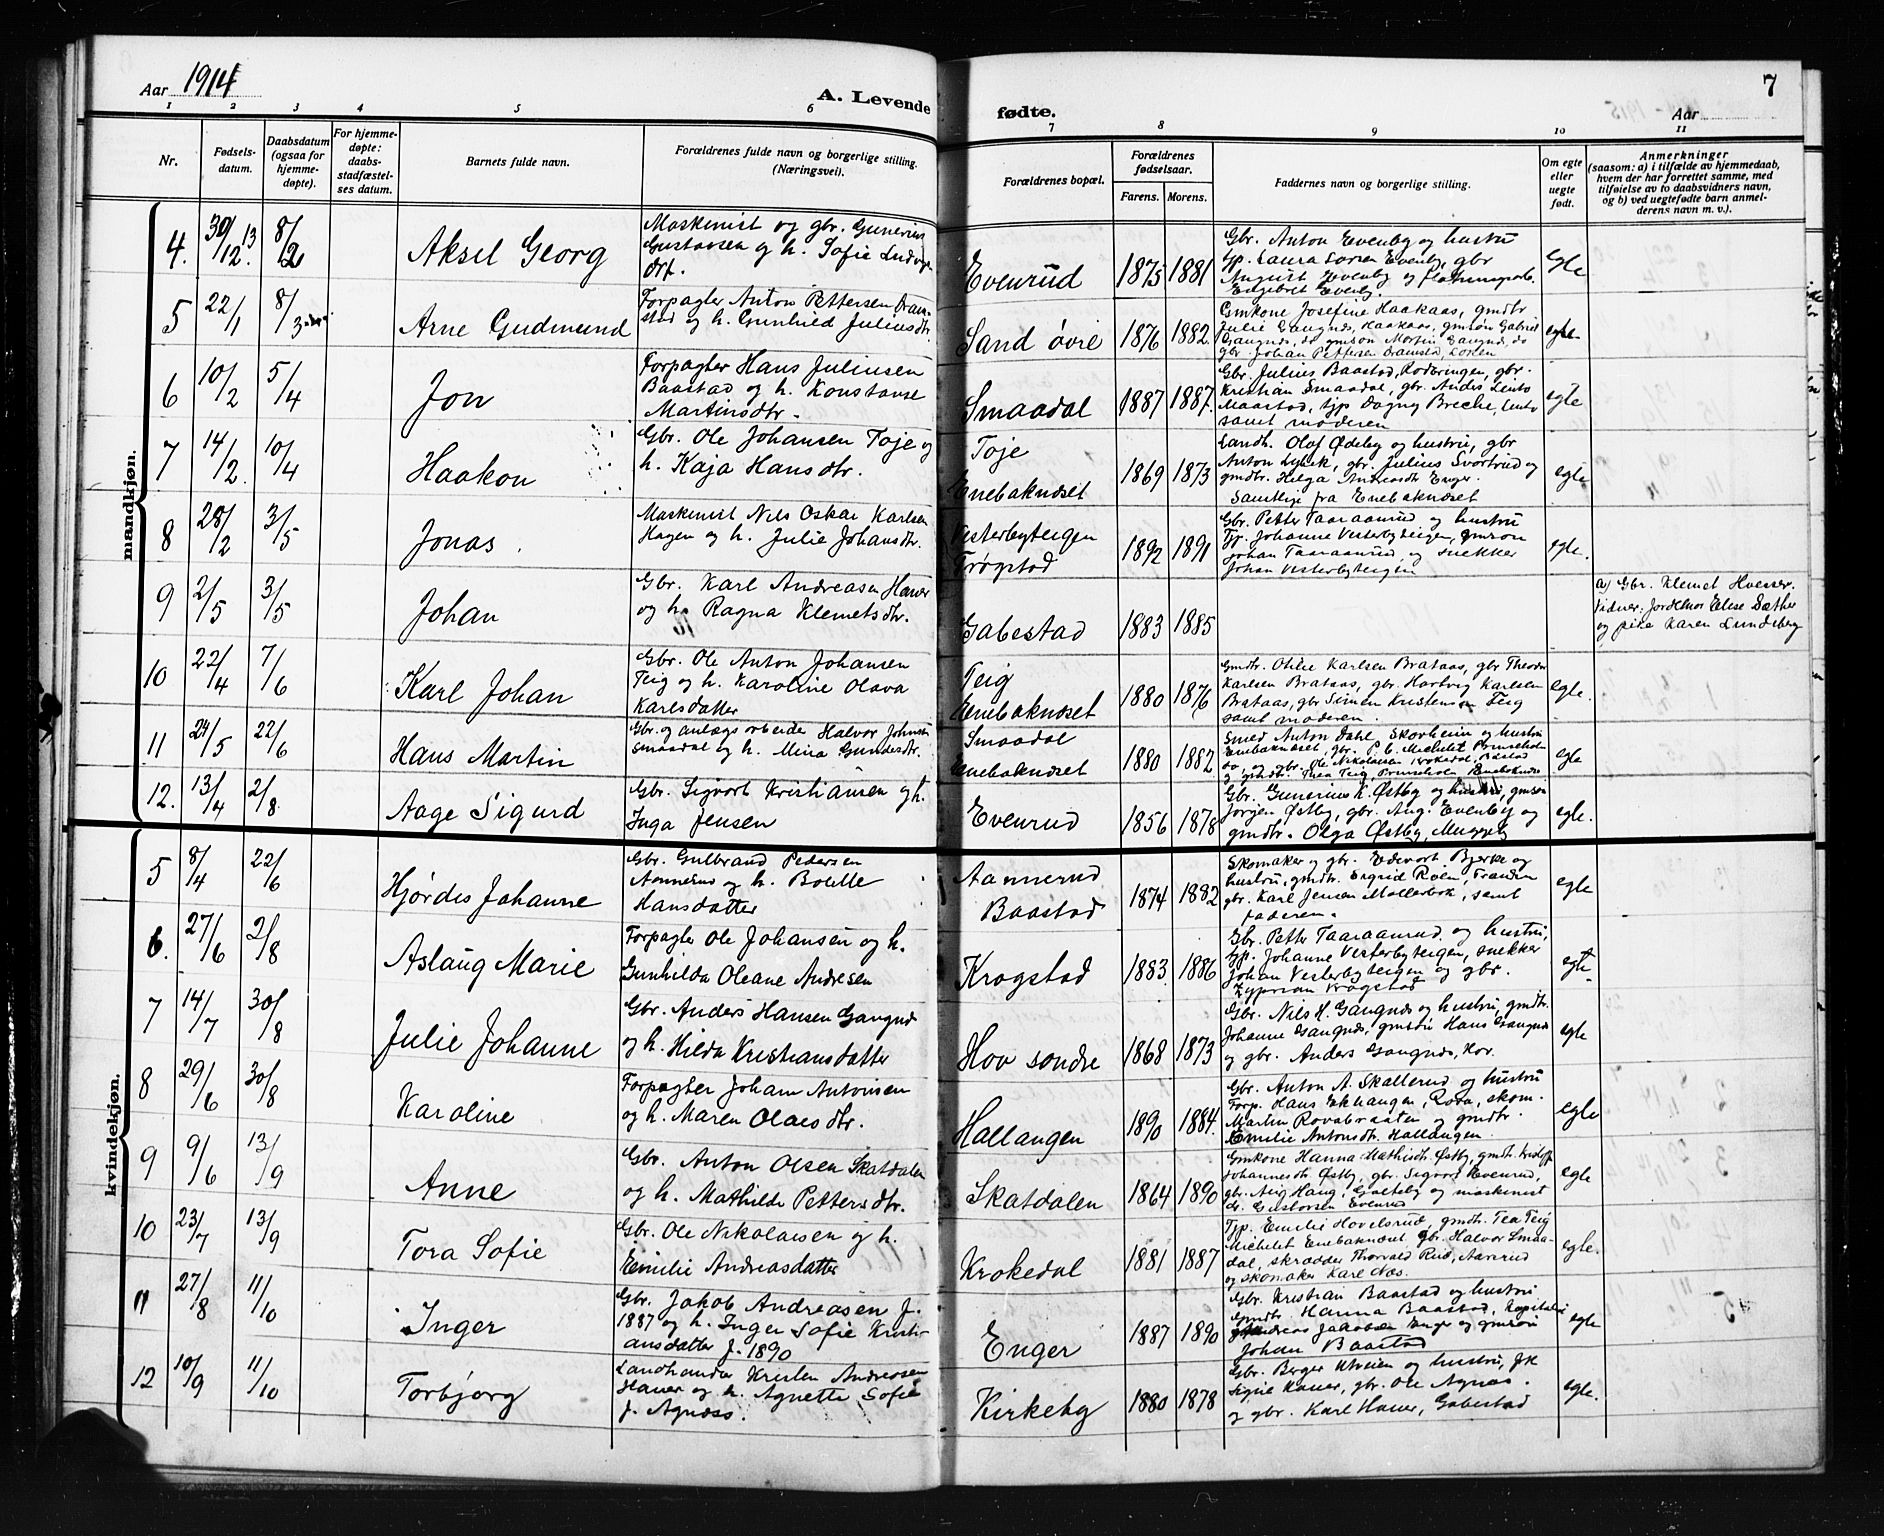 Aar 1914
A. Levende
fødte.
7
Aar
1 2 3 4 5 6 7 8 9 10 11
Nr.
Fødsels-
datum.
Daabsdatum
(ogsaa for
hjemme-
døpte).
For hjemme-
døpte:
daabs-
stadfæstel-
ses datum.
Barnets fulde navn.
Forældrenes fulde navn og borgerlige stilling.
(Næringsvei).
Forældrenes bopæl.
Forældrenes
fødselsaar.
Farens. Morens.
Faddernes navn og borgerlige stilling.
Om egte
eller
uegte
født.
Anmerkninger
(saasom: a) i tilfælde av hjemmedaab,
hvem der har forrettet samme, med
tilføielse av to daabsvidners navn,
og b) ved uegtefødte barn anmel-
derens navn m. v.).
mandkjøn.
4. 30/12 13 8/2 Aksel Georg
Maskinist og gbr. Gunerius
Gustavsen og h. Sofie Ludvigs
dtr.
Evenrud 1875 1881
Gbr. Anton Evenby og hustru
Tjp. Laura Evenby, gbr
August Evenby og
Engebret Evenby.
Egte
5 22/1 8/3 Arne Gudmund
Forpagter Anton Pettersen Bram-
stad og h. Gunhild Juliusdtr.
Sand øvre 1876 1882.
Gmkone Josefine Haakaas, gmdtr
Julie Gangnæs, Haakaas, gmsøn Gabriel
Gangnæs, do gmsøn Martin Gangnæs, do
gbr. Johan Pettersen Bramstad,
egte
6 10/2 5/4 Jon
Forpagter Hans Juliusen
Baastad og h. Konstanse
Martinsdtr.
Smaadal 1887 1887.
Gbr. Julius Baastad, gbr.
Kristian Smaadal, gbr. Anders
Maastad, tjp Dagny Breche,
samt moderen
egte
7 14/2 10/4 Haakon
Gbr. Ole Johansen Toje og
h. Kaja Hansdtr.
Toje
Enebaknæset 1869 1873
Landh. Olaf Ødeby og hustru, gbr
Anton Lybek, gbr. Julius Svartrud og
gmdtr. Helga Andreasdtr Enger.
Samtlige fra Enebaknæset
egte
8 28/2 3/5 Jonas.
Maskinist Nils Oskar Karlsen
Hagen og h. Julie Johansdtr.
Vesterbyteigen
Trøgstad 1892 1891
Gbr. Petter Taaraanrud og hustru
Tjp. Johanne Vesterbyteigen, gmsøn
Johan Taaraanrud og snekker
Johan Vesterbyteigen
egte.
9 2/5 3/5 Johan
Gbr. Karl Andreasen Hauer
og h. Ragna Klemetsdtr.
Gabestad 1883 1885
a) Gbr. Klemet Hvesser.
Vidner: Jordmor Elise Sæther
og pike Karen Lundeberg
10 22/4 7/6 Karl Johan
Gbr. Ole Anton Johansen
Teig og h. Karoline Olava
Karlsdatter
Teig
Enebaknæset 1880 1876
Gmdtr. Otilie Karlsen Brataas, gbr Theodor
Karlsen Brataas, gbr. Hartvig Karlsen
Brataas, gbr Simen Kristensen Teig
samt moderen.
egte.
11 24/5 22/6 Hans Martin
Gbr. og anlægsarbeider Halvor Johnsen
Smaadal og h. Mina Gundersdtr.
Smaadal
Enebaknæset 1880 1882
Smed Anton Dahl, Skovheim og hustru
Enebaknæset, gbr. P. C. Michelet
do, og gbr. Ole Nikolaisen Krokedal, Baastad
og gmdtr. Thea Teig, Enebaknæs
egte
12. 13/4 2/8 Aage Sigurd
Gbr. Sigvart Kristiansen og h.
Inga Jensen
Evenrud 1856 1878
Gbr. Gunerius K. Østby og hustru, gmsøn
Jørgen Østby, gbr. Aug. Evenby og
gmdtr. Olga Østby, Muggeby
egte.
kvindekjøn.
5 8/4 22/6 Hjørdis Johanne
Gbr. Gulbrand Pedersen
Aannerud og h. Bolette
Hansdatter
Aannerud
Baastad 1874 1882
Skomaker og gbr. Edevart Bjerke og
hustru, gmdtr. Sigrid Roen,
gbr. Karl Jensen Møllerbok, samt
faderen.
egte
6. 27/6 2/8 Aslaug Marie
Forpagter Ole Johansen og h.
Gunhilda Oleane Andresen
Krogstad 1883 1886
Gbr. Petter Taaraanrud og hustru,
tjp. Johanne Vesterbyteigen, snekker
Johan Vesterbyteigen og gbr.
Zyprian Krogstad
egte
7 14/7 30/8 Julie Johanne
Gbr. Anders Hansen Gangnæs
og h. Hilda Kristiansdatter
Hov søndre 1868 1873
Gbr. Nils H. Gangnæs og hustru, gmdtr.
Johanne Gangnæs, gmsøn Hans Gangnæs
og gbr. Anders Gangnæs, Hov.
egte
8 29/6 30/8 Karoline
Forpagter Johan Antonsen
og h. Maren Olaesdtr.
Hallangen 1890 1884.
Gbr. Anton A. Skallerud og hustru
Forp. Hans Ekhaugen, Rova, skom.
Martin Rovabraaten og gmdtr.
Emilie Antonsdtr. Hallangen.
egte
9 9/6 13/9 Anne
Gbr. Anton Olsen Skatdalen
og h. Mathilde Pettersdtr.
Skatdalen 1864 1890
Gmkone Hanna Mathisdtr. Østby, gmdtr.
Johannesdtr Østby, gbr. Sigvart Evenrud,
gbr. Haug, og maskinist
G. Gustavsen Evenrud
egte
10 23/7 13/9 Tora Sofie
Gbr. Ole Nikolaisen og h.
Emilie Andreasdatter
Krokedal 1881 1887
Tjp. Emilie Hovelsrud, gmdtr. Tea Teig
Michelet Enebaknæset gbr. Halvor Smaa-
dal, skrædder Thorvald Rud, Aarerud
og skomaker Karl Næs.
egte.
11 27/8 11/10 Inger
Gbr. Jakob Andreasen f.
1887 og h. Inger Sofie Kristi-
ansdatter f. 1890
Enger 1887 1890
Gbr. Kristian Baastad og hustru
gmdtr. Hanna Baastad,
Andreas Jakobsen Enger og gmsøn
Johan Baastad
egte
12 10/9 11/10 Torbjørg
Landhandler Kristen Andreasen
Hauer og h. Agnette Sofie
f. Agnæss.
Kirkeby 1880 1878
Gbr. Berger Utveien og hustru, frk
Signe Hauer, gbr. Ole Agnæs.
og gbr. Karl Hauer, Gabestad
egte.